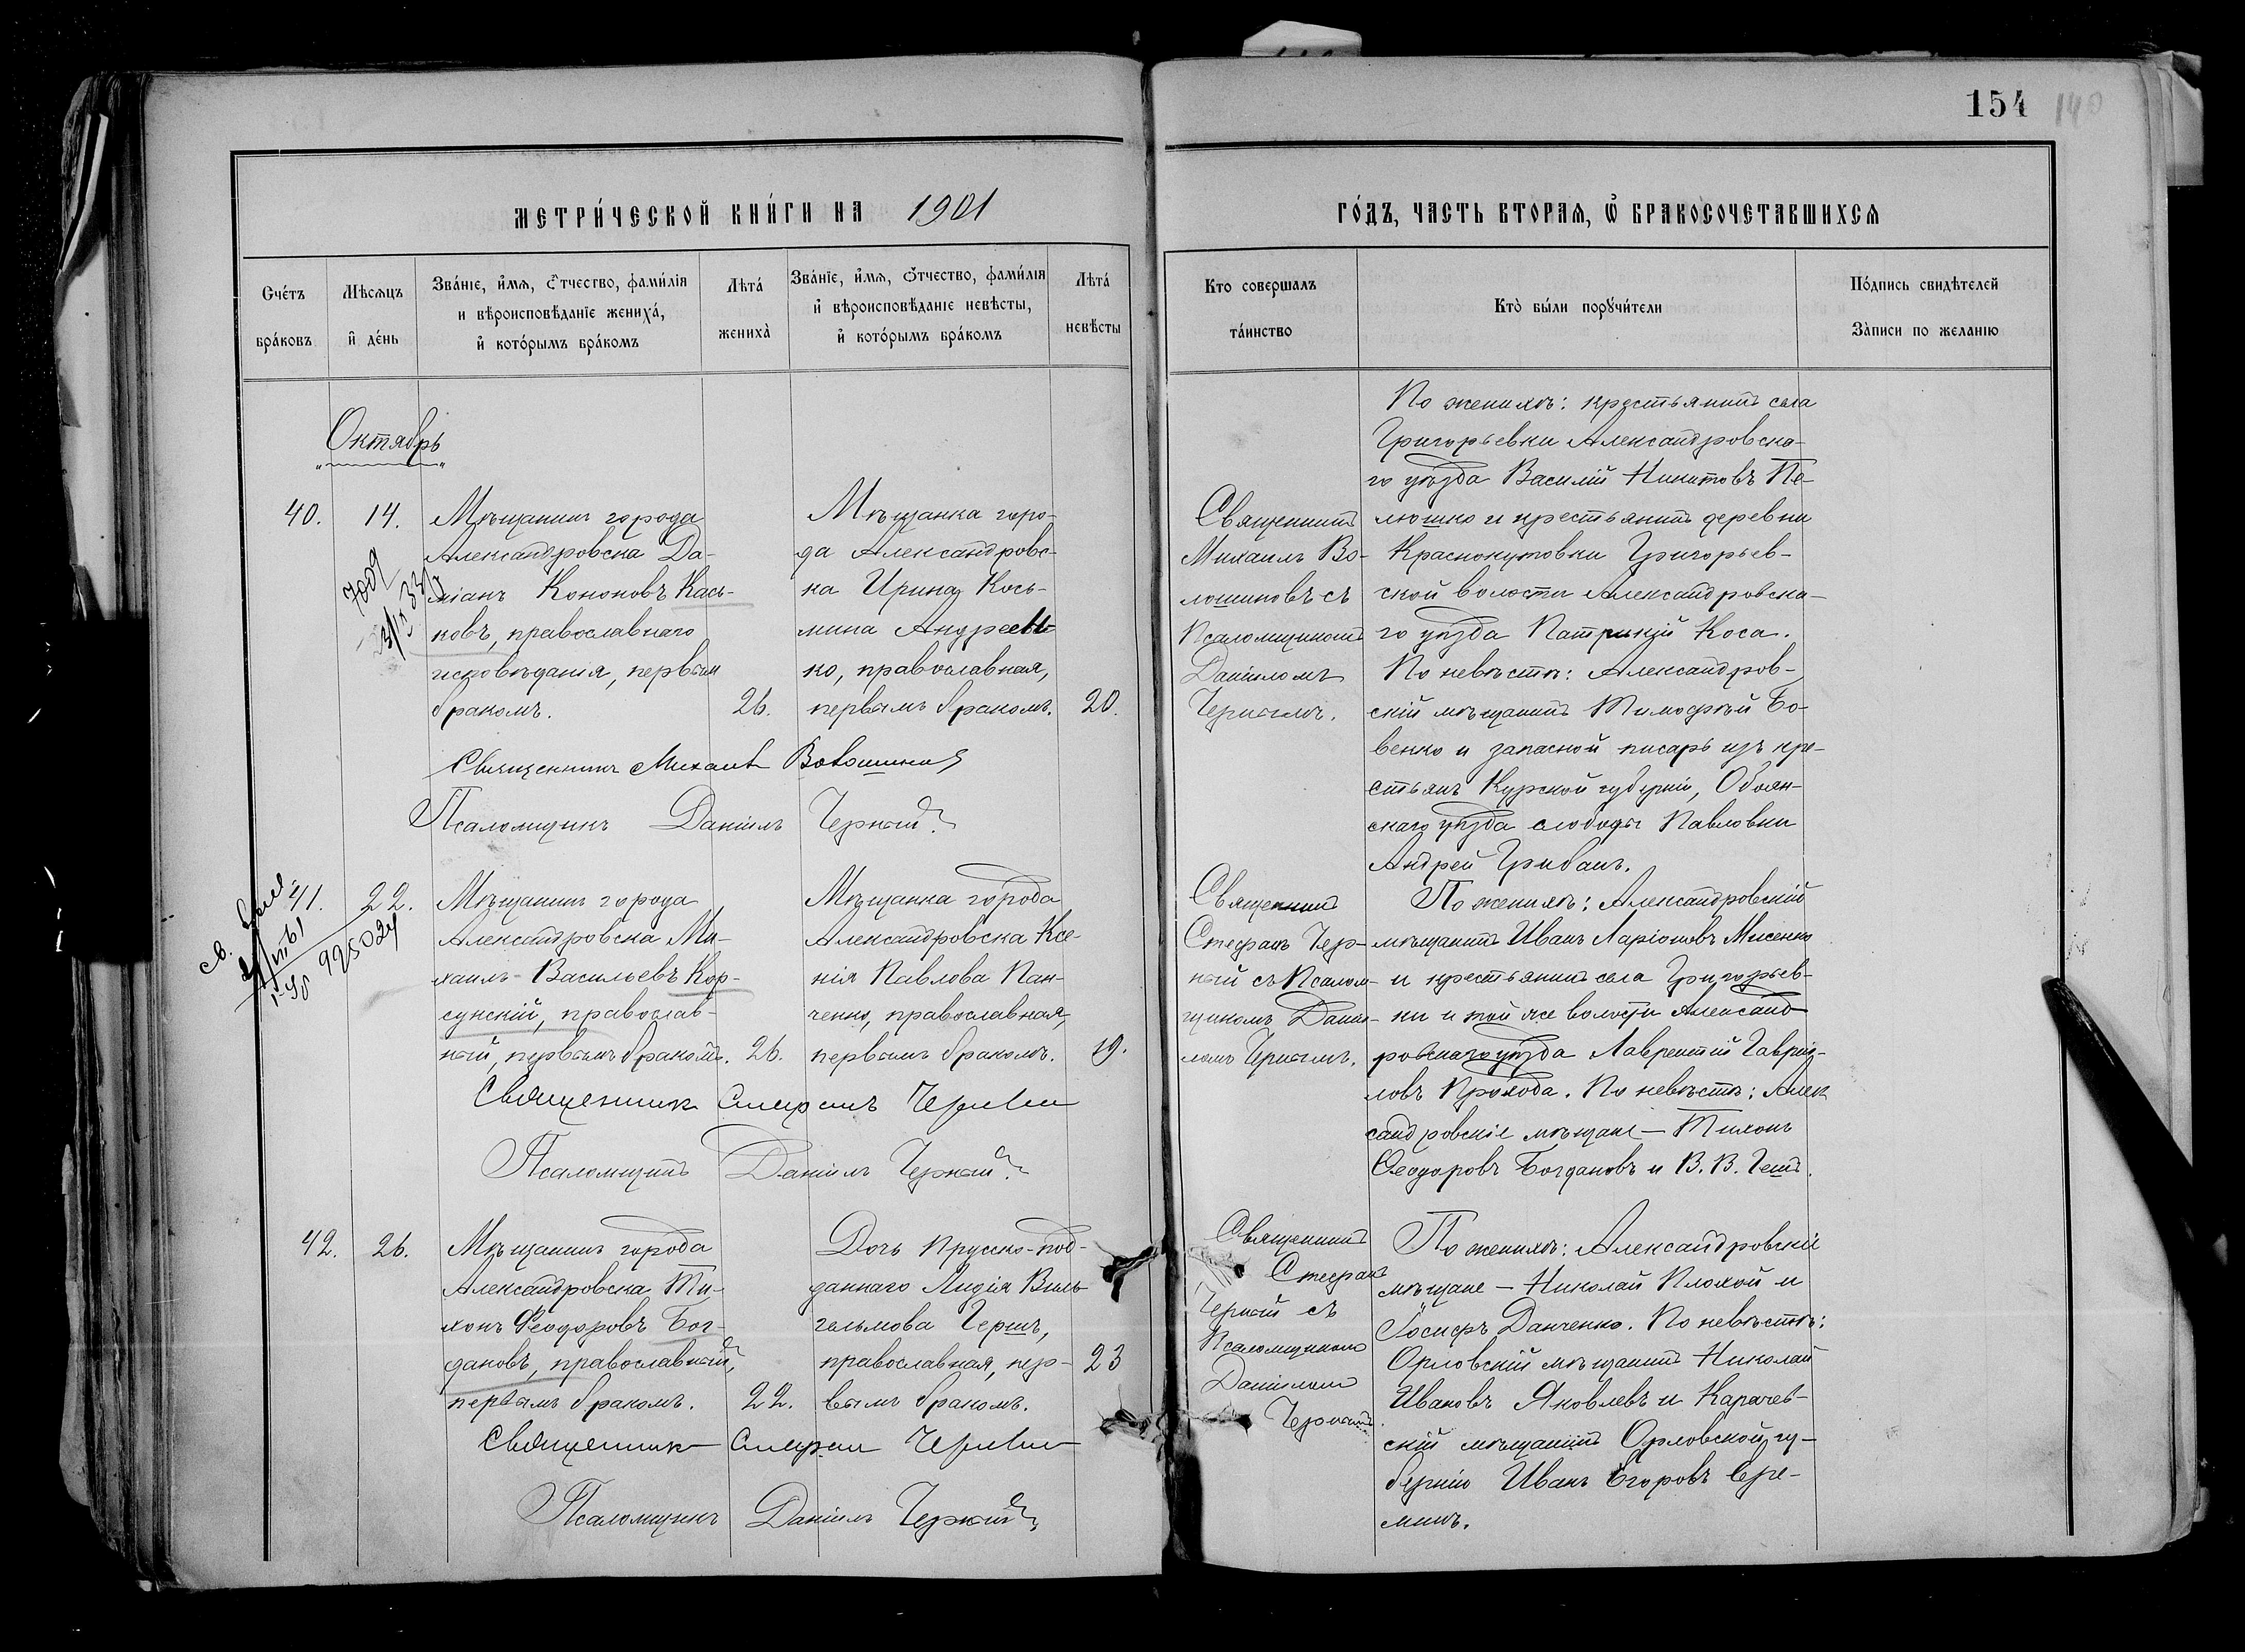 154
140
МЕТРИ́ЧЕСКОЙ КНИ́ГИ НА 1901
ГО́ДЪ, ЧАСТЬ ВТОРАѦ, Ѡ҆ БРАКОСОЧЕТАВШИХСѦ
Сче́тъ
бра́ковъ
Мѣ́сѧцъ
и҆ де́нь
Зва́нїе, и҆́мѧ, ѻ҆́тчество, фами́лїѧ
и вѣроисповѣ́данїе жениха̀,
и҆ кото́рымъ бра́комъ
Лѣта̀
жениха̀
Зва́нїе, и҆́мѧ, ѻ҆́тчество, фами́лїѧ
и҆ вѣроисповѣ́данїе невѣ́сты,
и҆ кото́рымъ бра́комъ
Лѣта̀
невѣ́сты
Кто совершалъ
та́инство
Кто̀ бы́ли порꙋчи́тели
По́дпись свидѣ́телей
За́писи по жела́нїю
Октябрь
40.
14.
Мѣщанинъ города
Александровска Да-
міанъ Кононовъ Кась-
ковъ, православнаго
исповѣданія, первымъ
бракомъ.
26.
Мѣщанка горо-
да Александровс-
ка Ирина Кось-
мина Андреен-
ко, православная,
первымъ бракомъ.
20.
Священникъ
Михаилъ Во-
лошиновъ съ
Псаломщикомъ
Даніиломъ
Чернымъ.
По женихѣ: крестьянинъ села
Григорьевки Александровска-
го уѣзда Василій Никитовъ Пе-
люшко и крестьянинъ деревни
Краснокутовки Григорьев-
ской волости Александровска-
го уѣзда Патрикій Коса.
По невѣстѣ: Александров-
скій мѣщанинъ Тимофѣй Бо-
венко и запасной писарь изъ кре-
стьянъ Курской губерніи, Обоян-
скаго уѣзда слободы Павловки
Андрей Грибанъ.
Священникъ Михаилъ Волошиновъ
Псаломщикъ Даніилъ Черный
41.
22.
Мѣщанинъ города
Александровска Ми-
хаилъ Васильевъ Кор-
сунскій, православ-
ный, первымъ бракомъ.
26.
Мѣщанка города
Александровска Ксе-
нія Павлова Пан-
ченко, православная,
первымъ бракомъ.
19.
Священникъ
Стефанъ Чер-
ный съ Псалом-
щикомъ Даніи-
ломъ Чернымъ.
По женихѣ: Александровскій
мѣщанинъ Иванъ Ларіоновъ Мисенко
и крестьянинъ села Григорьев-
ки и той же волости Александ-
ровскаго уѣзда Лаврентій Гаврі-
ловъ Прохода. По невѣстѣ: Алек
сандровскіе мѣщане — Тихонъ
Ѳеодоровъ Богдановъ и В. В. Гешъ.
Священникъ Стефанъ Черный
Псаломщикъ Даніилъ Черный
42.
26.
Мѣщанинъ города
Александровска Ти-
хонъ Ѳеодоровъ Бог-
дановъ, православный,
первымъ бракомъ.
22.
Дочь Прусско-под-
даннаго Лидія Виль-
гельмова Гершъ,
православная, пер-
вымъ бракомъ.
23
Священникъ
Стефанъ
Черный съ
Псаломщикомъ
Даніиломъ
Чернымъ
По женихѣ: Александровскіе
мѣщане — Николай Плохой и
Іосифъ Данченко. По невѣстѣ:
Орловскій мѣщанинъ Николай
Ивановъ Яковлевъ и Карачев-
скій мѣщанинъ Орловской гу-
берніи Иванъ Егоровъ Ере-
минъ.
Священникъ Стефанъ Черный
Псаломщикъ Даніилъ Черный